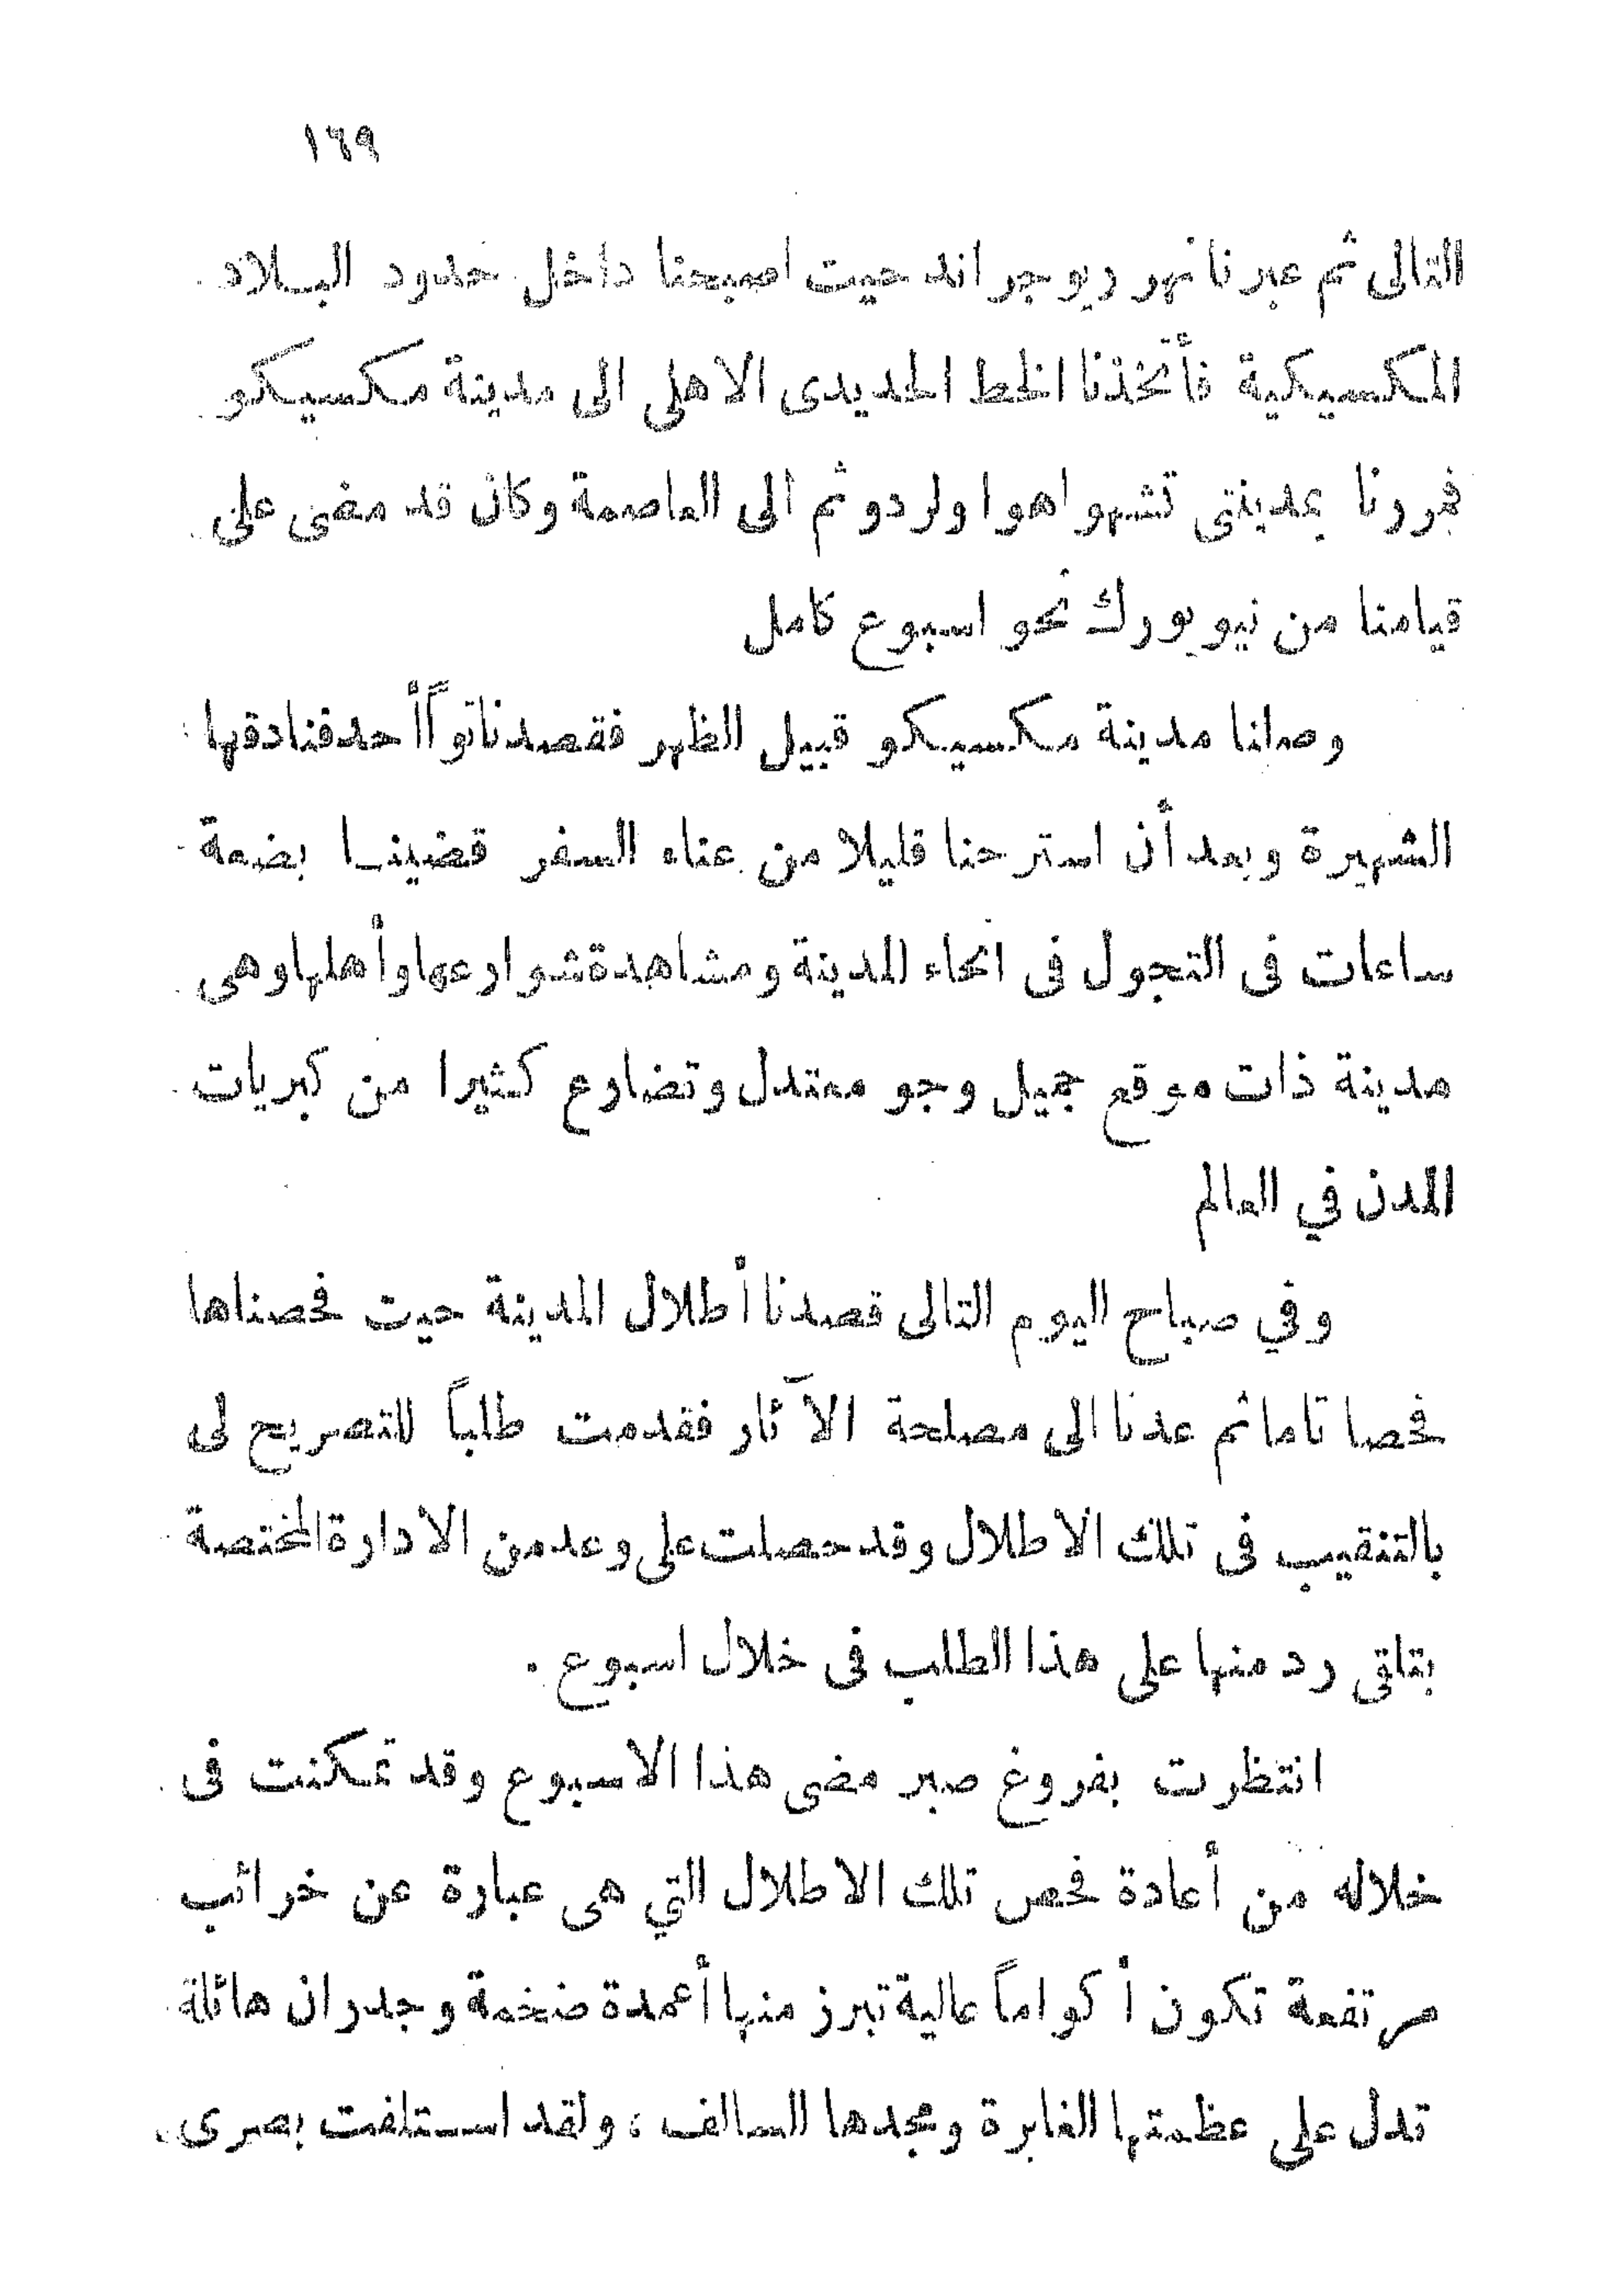 ١٦٩
التالى ثم عبرنا نهر ريوجراند حيث اصبحنا داخل حدود البلاد
المكسيكية فأتخذنا الخط الحديدى الاهلى الى مدينة مكسيكو
فمررنا بمدينتى تشهواهوا ولردو ثم الى العاصمة وكان قد مضى على
قيامنا من نيويورك نحو اسبوع كامل
وصلنا مدينة مكسيكو قبيل الظهر فقصدنا تواً أحد فنادقها
الشهيرة وبعد أن استرحنا قليلا من عناء السفر قضينا بضعة
ساعات فى التجول فى انحاء المدينة ومشاهدة شوارعها وأهلها وهى
مدينة ذات موقع جميل وجو معتدل وتضارع كثيرا من كبريات
المدن في العالم
وفي صباح اليوم التالى قصدنا أطلال المدينة حيث فحصناها
فحصا تاما ثم عدنا الى مصلحة الآثار فقدمت طلباً للتصريح لى
بالتنقيب فى تلك الاطلال وقد حصلت على وعد من الادارة المختصة
بتلقى رد منها على هذا الطلب فى خلال اسبوع .
انتظرت بفروغ صبر مضى هذا الاسبوع وقد تمكنت فى
خلاله من أعادة فحص تلك الاطلال التي هى عبارة عن خرائب
مرتفعة تكون أكواماً عالية تبرز منها أعمدة ضخمة وجدران هائلة
تدل على عظمتها الغابرة ومجدها السالف ، ولقد استلفت بصرى